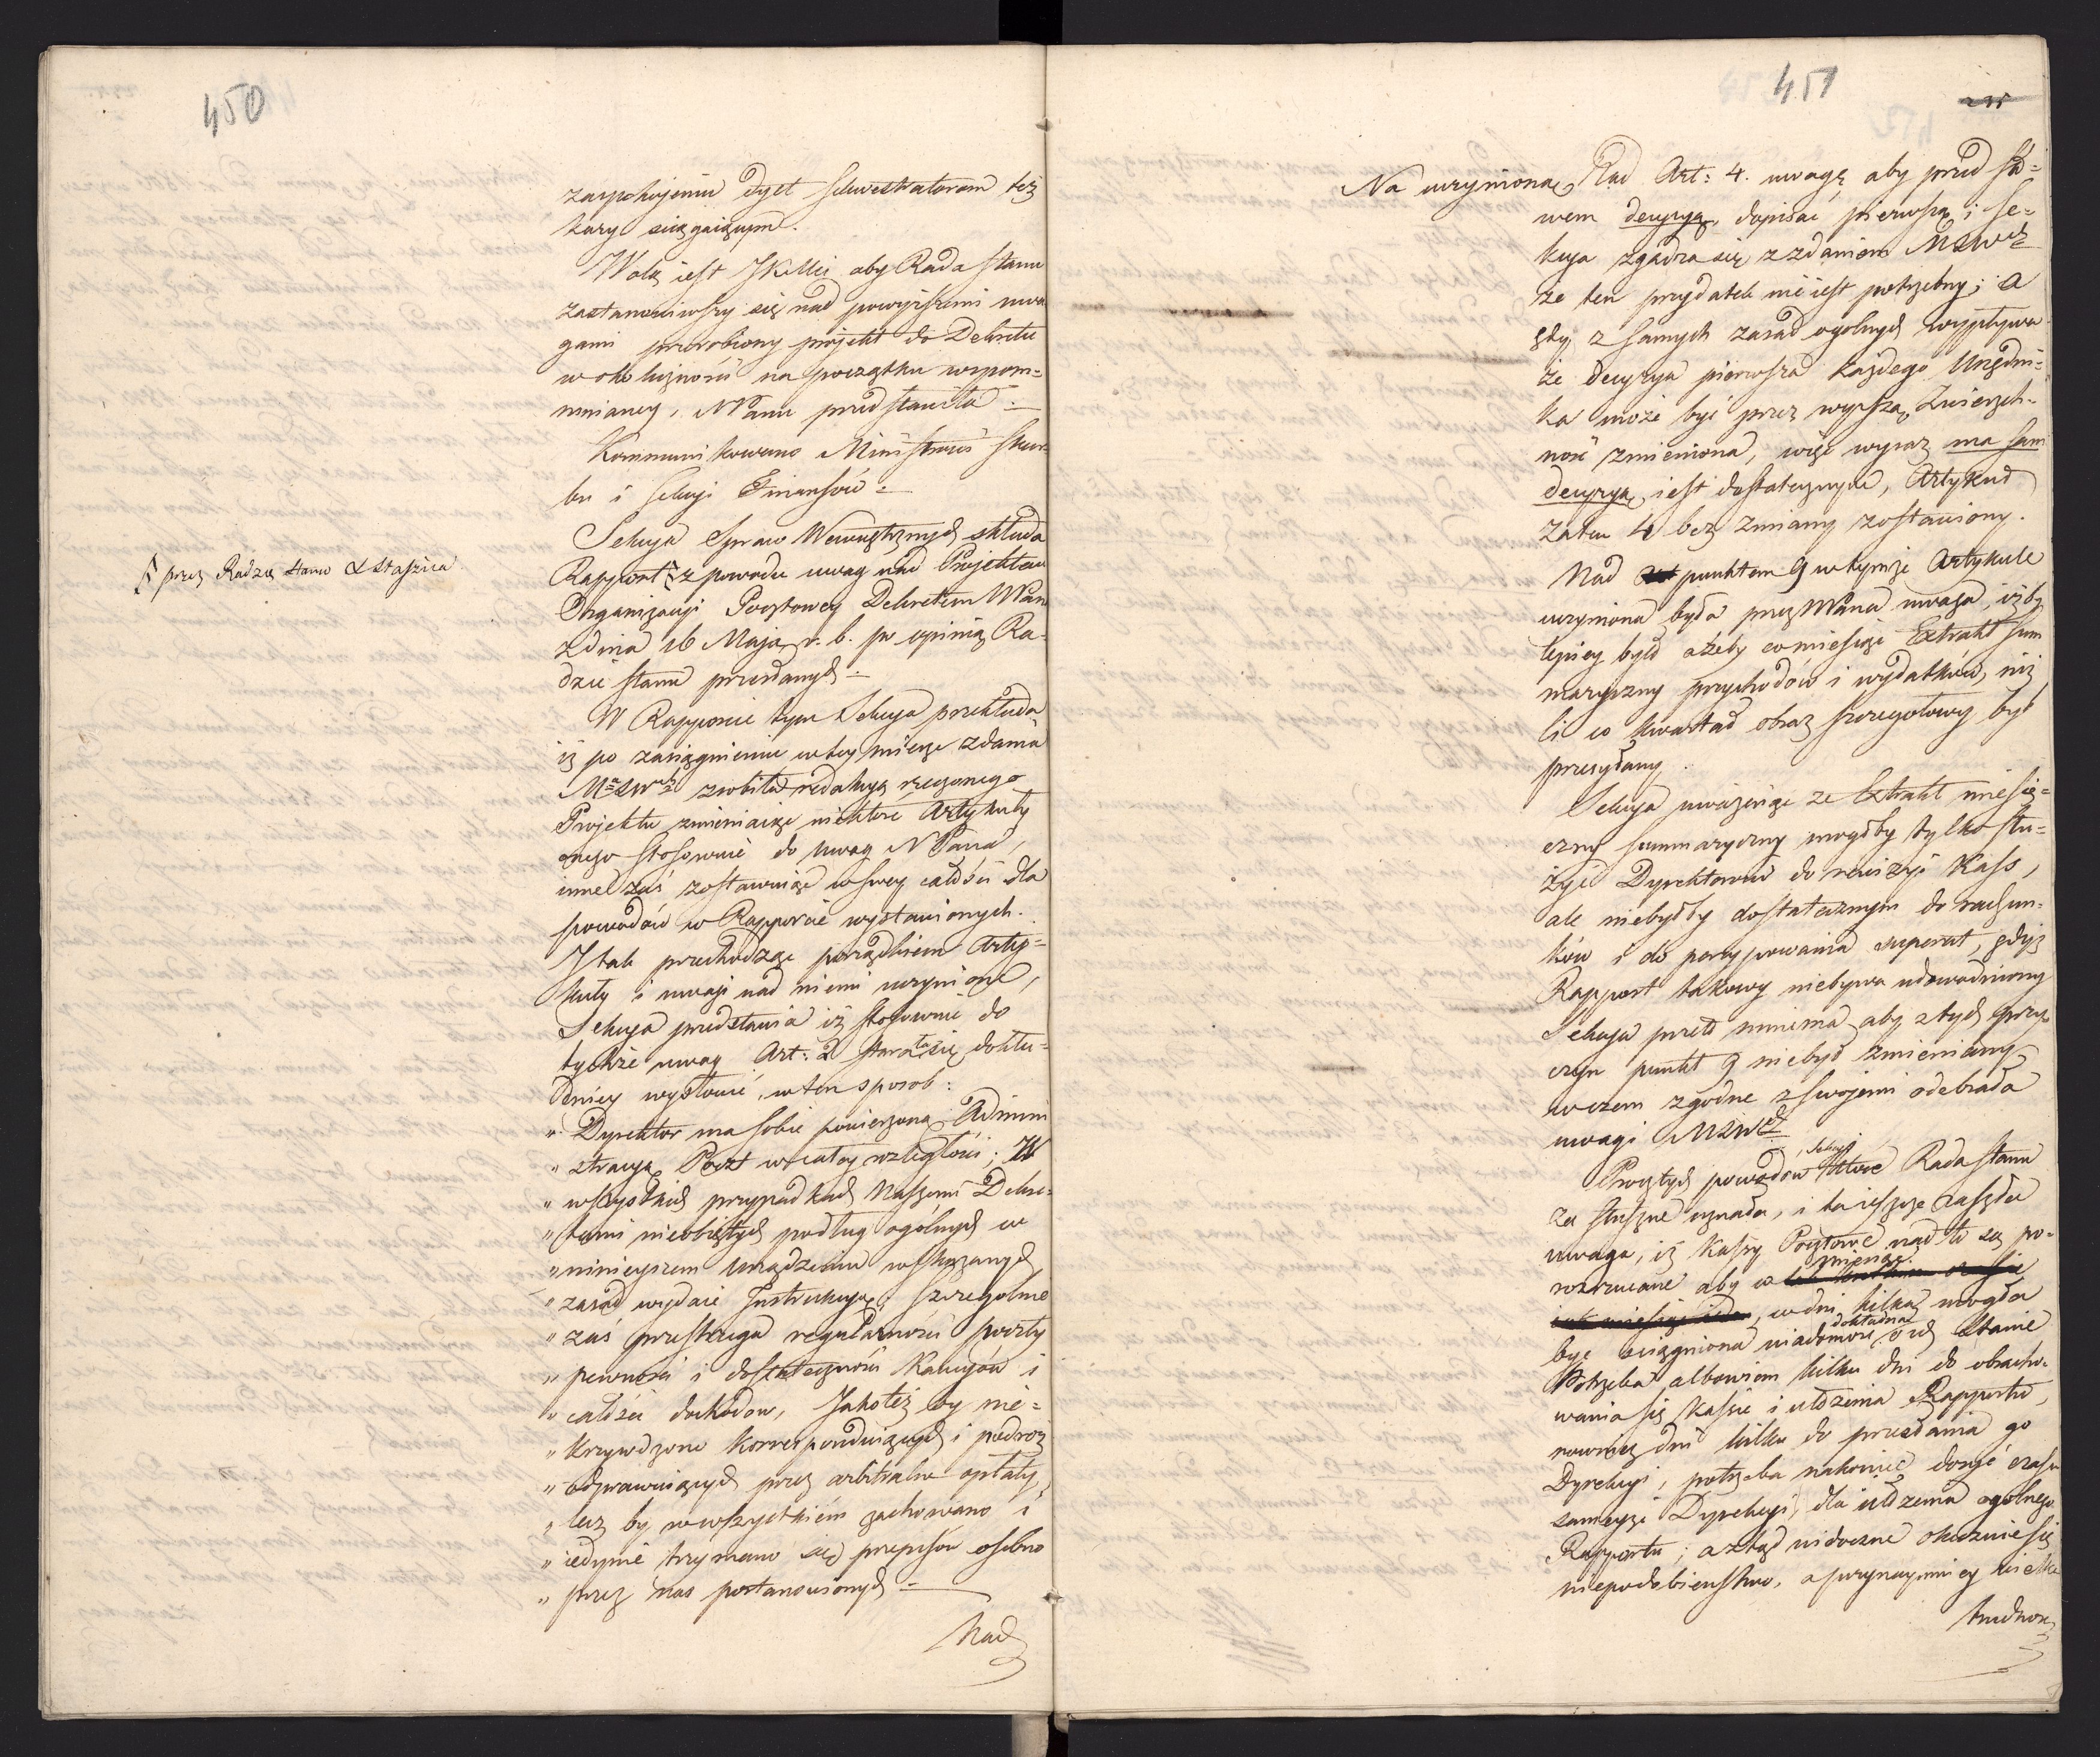 450
zaspokojeniu dyet sekwestratorom też
kary sięgaiącym.
Wolą iest JKMci aby Rada Stanu
zastanowiwszy się nad powyższemi uwa
gami przerobiony projekt do Dekretu
w okoliczności na początku wspom=
mnianey, NPanu przedstawiła.
Kommunikowano Ministrowi Skar=
bu i Sekcyi Finansów.
Sekcya Spraw Wewnętrznych składa
Rapport z powodu uwag nad Projektem
przez Radzcę Stanu X Staszica
Organizacyi Pocztowey Dekretem NPana
z dnia 16 Maja r. b. po opinią Ra=
dzie Stanu przesłanych
W Rapporcie tym Sekcya przekłada
iż po zasiągnieniu w tey mierze zdania
Mra SWch zrobiła redakcyą rzeczonego
Projektu zmieniaiąc niektóre Artykuły
onego stosownie do uwag NPana,
inne zaś zostawuiąc w swey całości dla
powodów w Rapporcie wystawionych.
I tak przechodząc porządkiem Arty=
kuły i uwagi nad niemi uczynione,
Sekcya przedstawia iż stosownie do
tychże uwag Art: 2 starała się dokła=
dniey wysłowić, w ten sposob:
" Dyrektor ma sobie powierzoną Admini
" stracyą Poczt w całey rozległości; W
" wszystkich przypadkach Naszemi Dekre=
" tami nieobiętych podług ogólnych w
" ninieyszem urządzeniu wskazanych
" zasad wydaie Instrukcye, szczególnie
" zaś przestrzega regularności poczty
" pewności i dostateczności Kaucyów i
" całości dochodow, Jakoteż by nie=
" krzywdzono korresponduiących i podroż
" odprawuiących przez arbitralne opłaty,
" lecz by we wszystkiém zachowano i
" iedynie trzymano się przepisów osobno
" przez nas postanowionych
Nad
451
235
Na uczynioną Nad Art: 4. uwagę aby przed sło=
wem decyzyą, dopisać pierwszą, i Se=
kcya zgadza się z zdaniem MSWch
że ten przydatek nie iest potrzebny; a
gdy z samych zasad ogolnych wypływa
że decyzya pierwsza każdego Urzędni=
ka może być przez wyższą Zwierzch=
ność zmieniona, więc wyraz ma sam
decyzyą iest dostatecznym, Artykuł
zatem 4 bez zmiany zostawiony.
Nad punktem 9 w tymże Artykule
uczyniona była przez NPana uwaga, iżby
lepiey było ażeby comiesiąc Extrakt sum
maryczny przychodów i wydatków, niż
li co kwartał obraz szczegołowy był
przesyłany.
Sekcya uważaiąc że Extrakt miesię=
czny summaryczny mogłby tylko słu=
żyć Dyrektorowi do rewizyi Kass,
ale niebyłby dostatecznym do rachun=
ków i do partycypowania superat, gdyż
Rapport takowy niebywa udowodniony
Sekcya przeto mniema aby z tych przy=
czyn punkt 9 niebył zmieniany
w czem zgodne z swojemi odebrała
uwagi MSWch
Procz tych powodów Sekcyi które Rada Stanu
za słuszne uznała, i ta ieszcze zaszła
uwaga, iż Kassy Pocztowe nadto są po=
rozrzucane aby w miesiąc
, w dni kilka mogła
być osiągniona wiadomość dokładna o ich stanie
Potrzeba albowiem kilku dni do obracho=
wania się Kassie i ułożenia Rapportu,
rownież dni kilka do przesłania go
Dyrekcyi, potrzeba nakoniec dosyć czasu
sameyże Dyrekcyi dla ułożenia ogolnego
Rapportu; a ztąd widoczne okazuie się
niepodobieństwo, a przynaymniey wielka
trudność